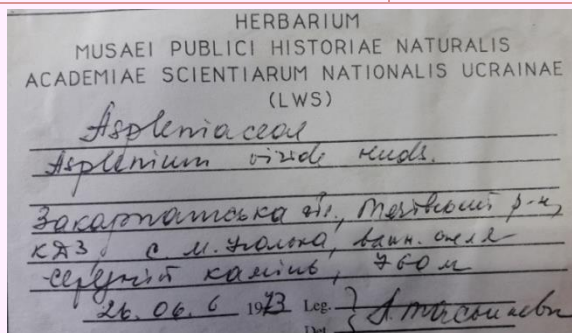 HERBARIUM
MUSAEI PUBLICI HISTORIAE NATURALIS
ACADEMIAE SCIENTIARUM NATIONALIS UCRAINAE
(LWS)
Aspleniaceae
Asplenium viride Huds.
Закарпатська обл., Тячівський р-н,
КДЗ, с. М. Уголька, вапн. скеля
Середній камінь, 760 м
26. 06. 1973 Leg.
Det.